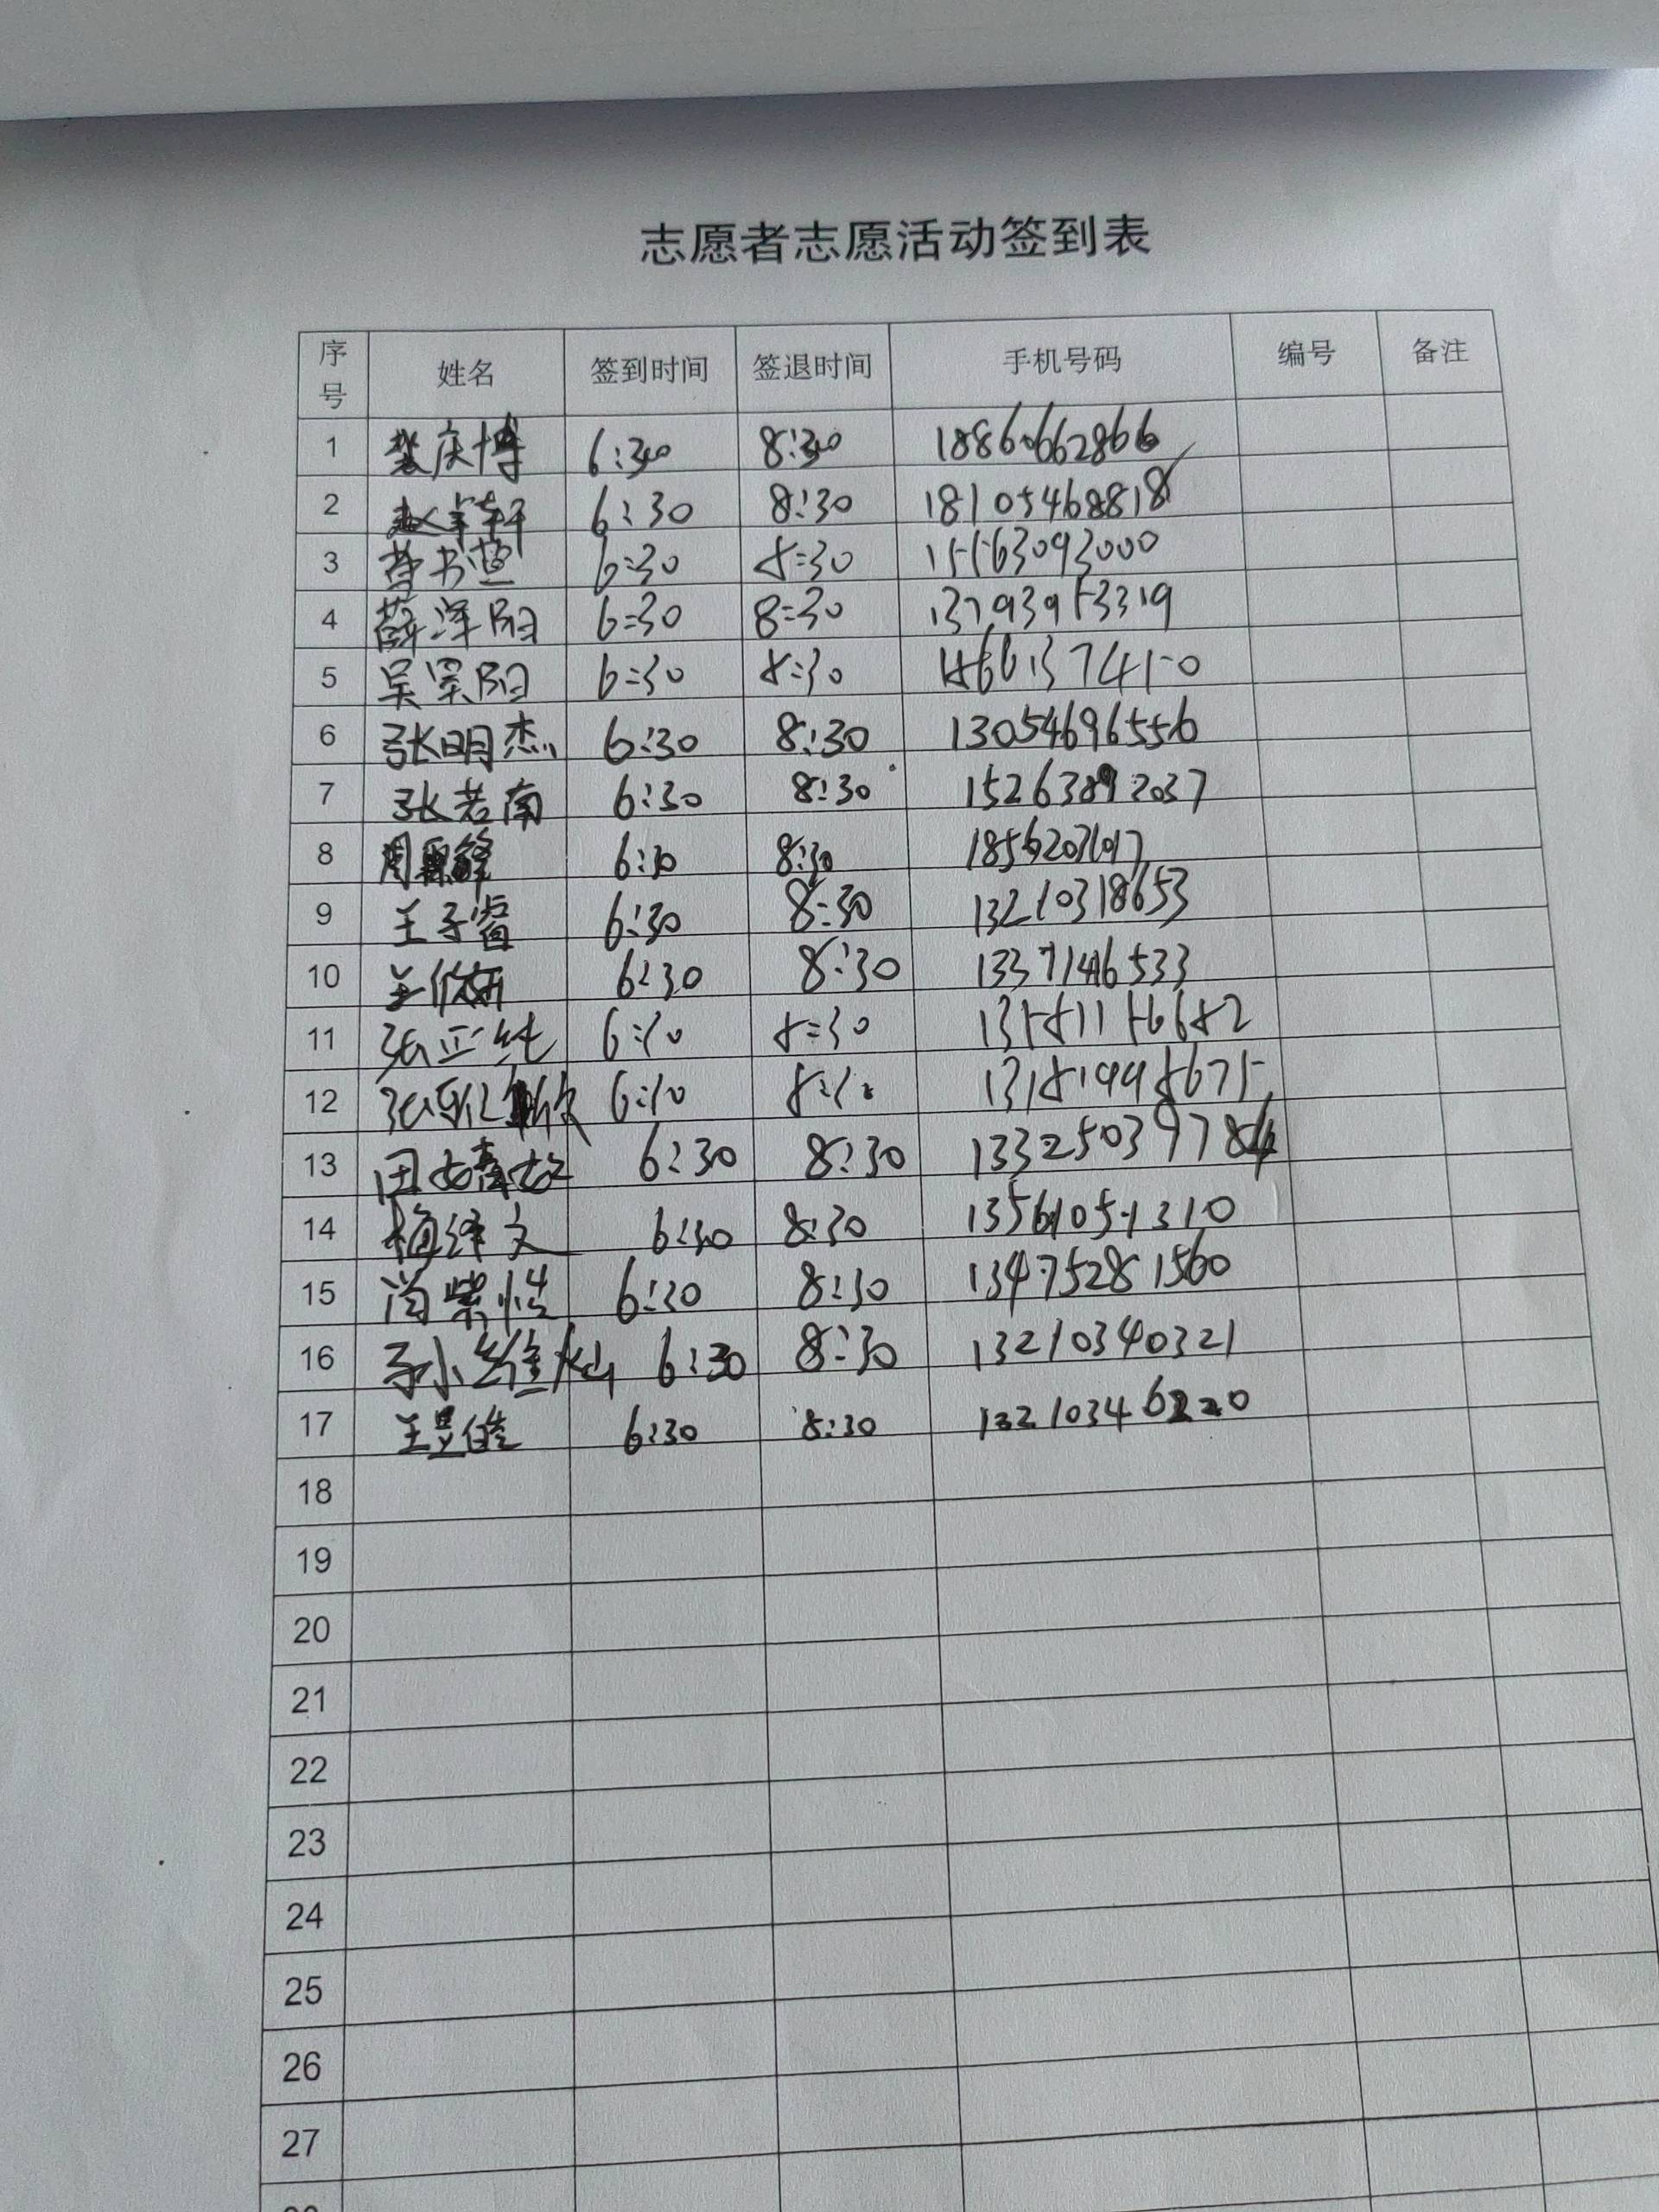 志愿者志愿活动签到表
序号 姓名 签到时间 签退时间 手机号码 编号 备注
1 庆博 6:30 8:30 18860662866
2 赵 轩 6:30 8:30 18105468818
3 书萱 6:30 8:30 15563092000
4 薛泽阳 6:30 8:30 13793953319
5 吴昊阳 6:30 8:30
6 张明杰 6:30 8:30 13054696556
7 张若南 6:30 8:30 15263892037
8 周 6:30 8:30
9 王子睿 6:30 8:30 13210318653
10 王 6:30 8:30 13371416533
11 张正纯 6:30 8:30
12 张 欣 6:30 8:30 13181998675
13 田 6:30 8:30
14 梅泽文 6:30 8:30 13561051310
15 尚紫恬 6:30 8:30 13475281560
16 孙 6:30 8:30 13210340321
17 王昱皓 6:30 8:30 13210346220
18
19
20
21
22
23
24
25
26
27